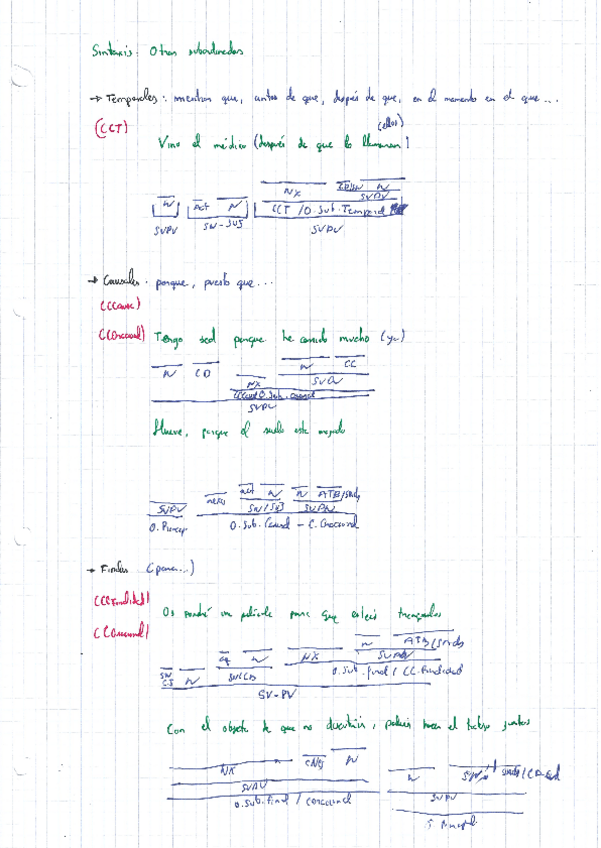 Sintaxis: Otras subordinadas
→ Temporales: mientras que, antes de que, después de que, en el momento en el que...
(CCT) (ellos)
Vino el médico (después de que lo llamaran)
NX CD/SN N
N Act N SVPV
SVPV SN-Suj CCT /O.Sub.Temporal
SVPV
→ Causales. porque, puesto que...
(CCCausa)
(COracional) Tengo sed porque he comido mucho (yo)
N CC
N CD NX SVPV
O.Sub. causal
SVPV
Llueve, porque el suelo está mojado
nexo act N N ATB/SAdj
SVPV SN/Suj SVPN
O.Princip O.Sub.Causal - C.Oracional
→ Finales (para...)
(CCFinalidad)
(COracional) Os pondré una película para que estéis tranquilos
N ATB/SAdj
N NX
SN CI N SN/CD O.Sub.final / CC.Finalidad
SV-PV
Con el objeto de que no discutáis, podéis hacer el trabajo juntos
NX CNeg N
N
SVPV SVPV
O.Sub.final / COracional
Principal